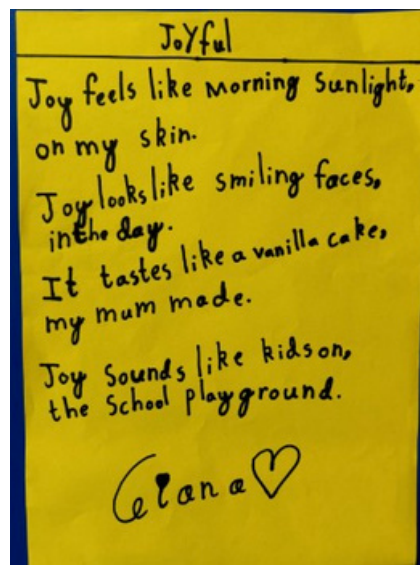 Joyful
Joy feels like Morning Sunlight,
on my skin.
Joy looks like smiling faces,
in the day.
It tastes like a vanilla cake,
my mum made.
Joy Sounds like kids on,
the School playground.
Giana♡